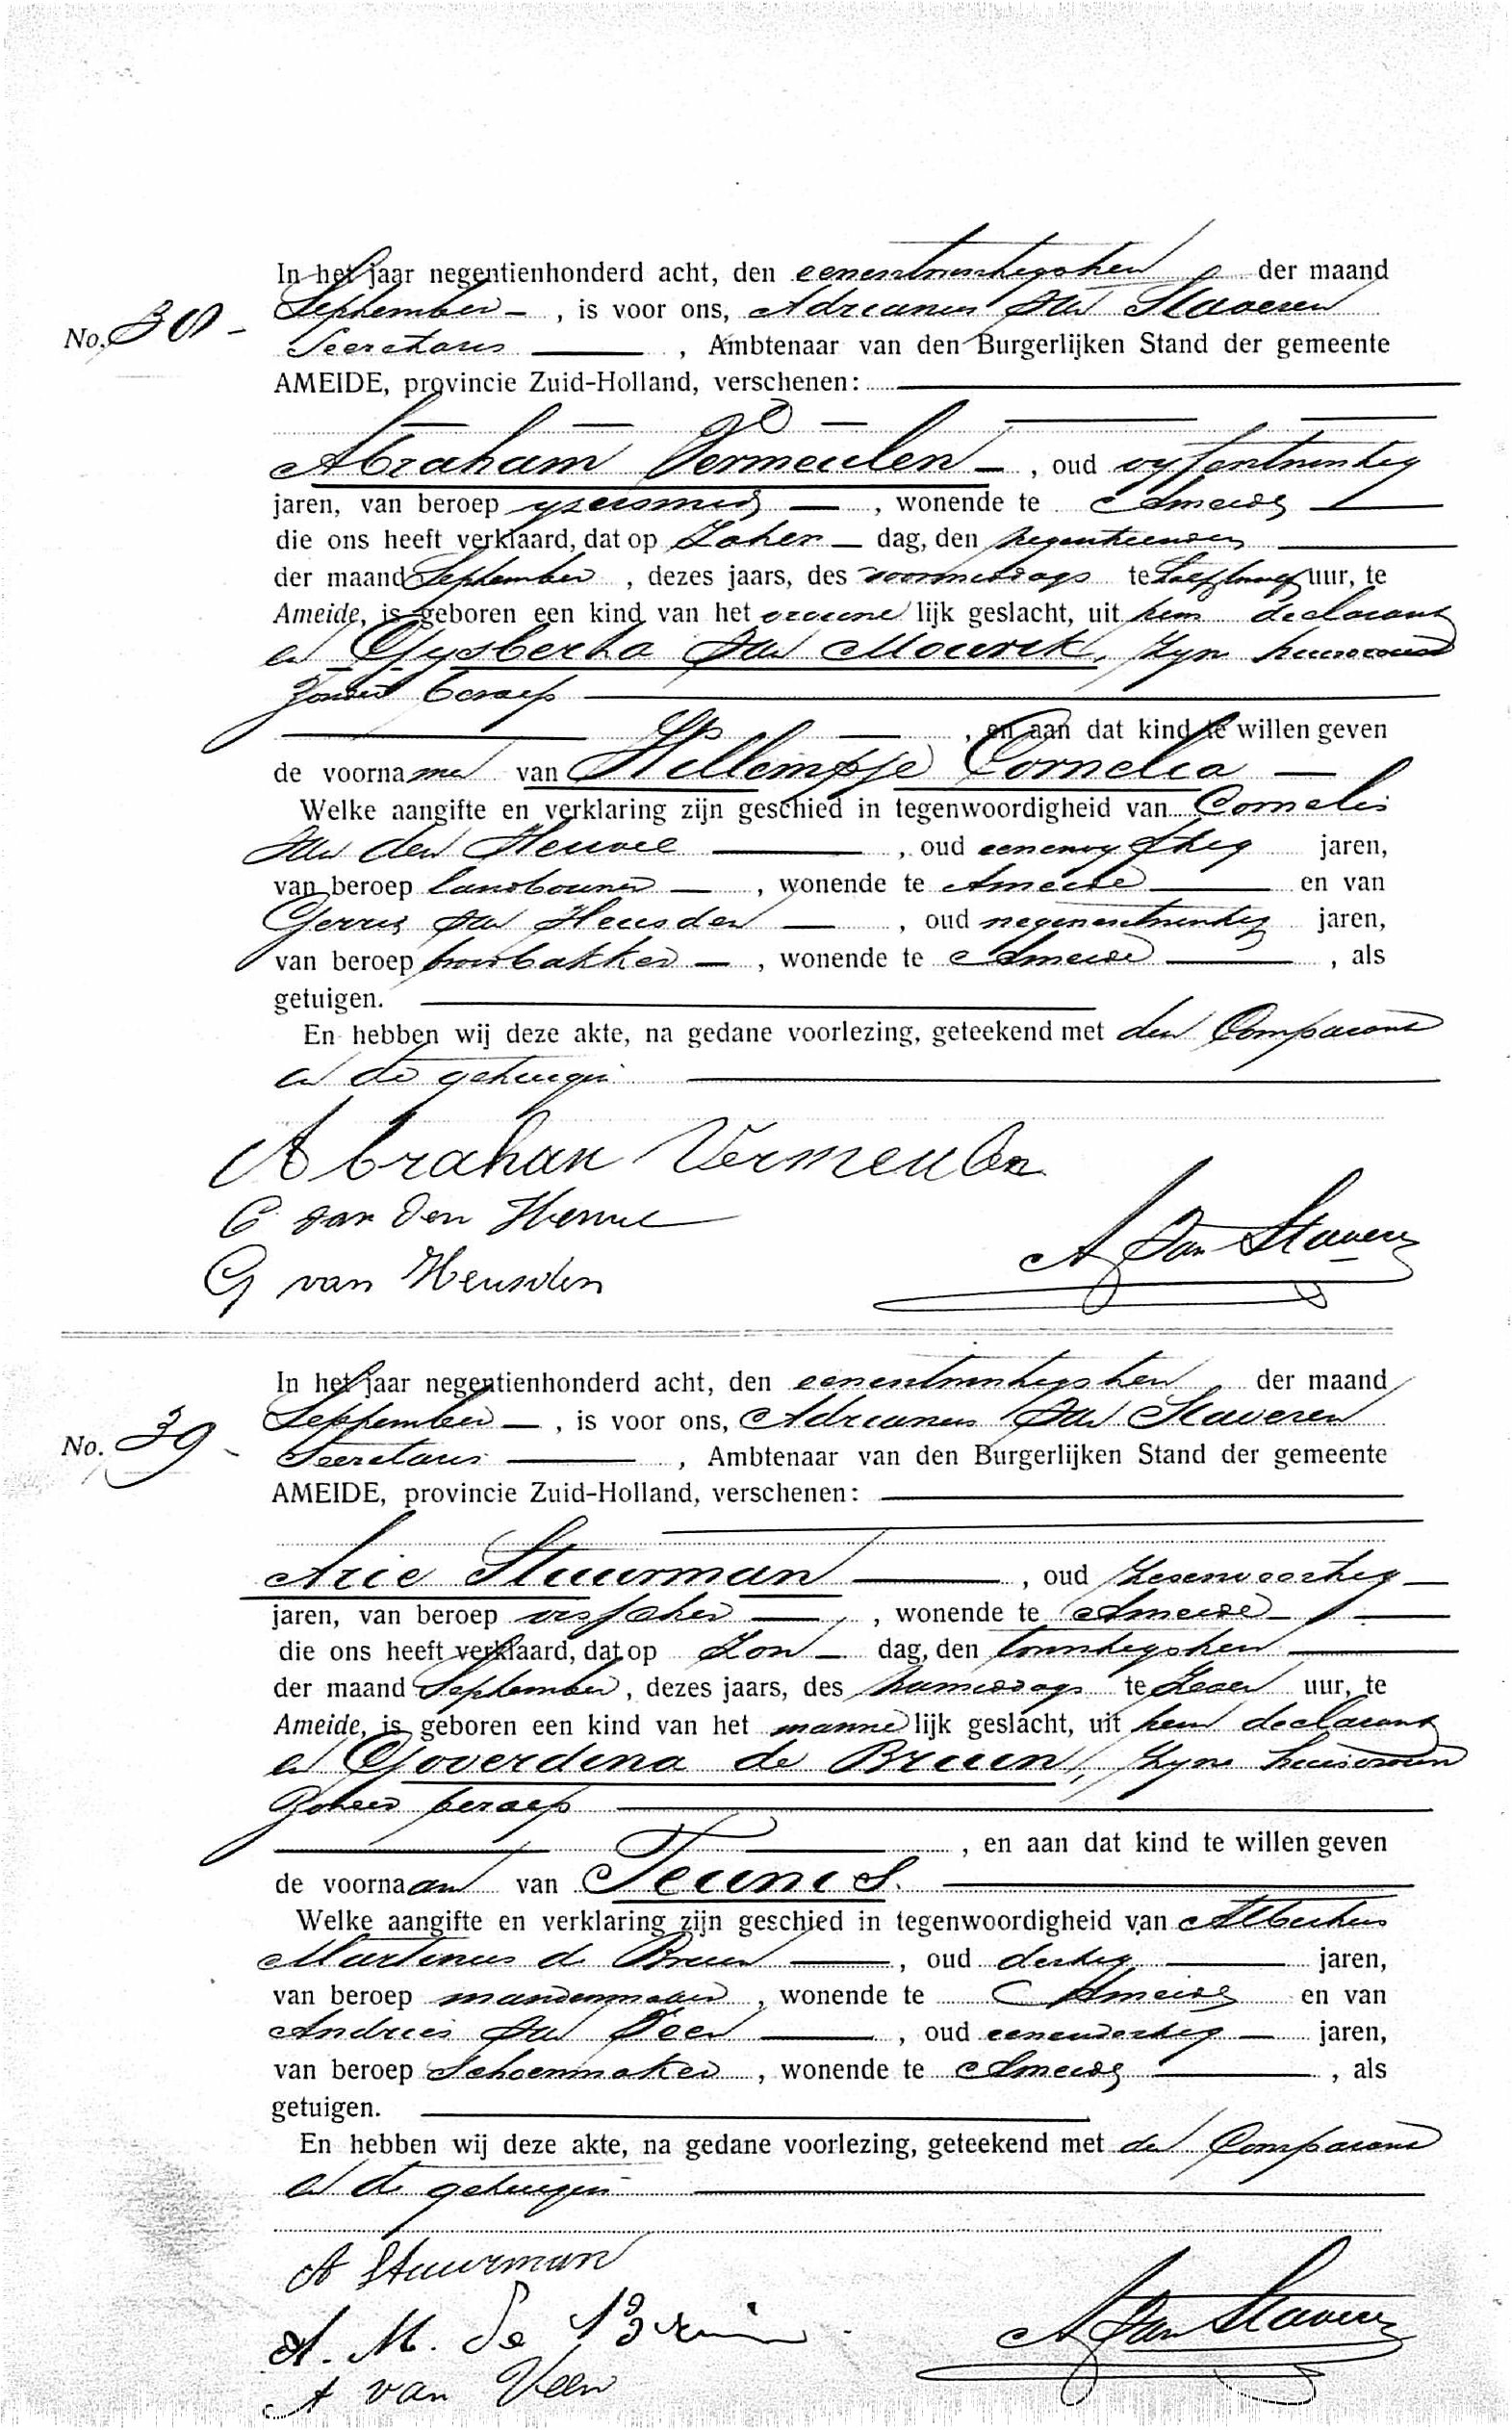 In het jaar negentienhonderd acht, den eenentwintigsten der maand
No. 38 September, is voor ons, Adrianus van Staveren
Secretaris, Ambtenaar van den Burgerlijken Stand der gemeente
AMEIDE, provincie Zuid-Holland, verschenen:
Abraham Vermeulen, oud vyfentwintig
jaren, van beroep yzersmid, wonende te Ameide
die ons heeft verklaard, dat op Zater dag, den negentienden
der maand September, dezes jaars, des voormiddags te half twaalf uur, te
Ameide, is geboren een kind van het vrouwe lijk geslacht, uit hem declarant
en Gysberta van Mourik, zyne huisvrouw
zonder beroep
, en aan dat kind te willen geven
de voornamen van Willempje Cornelia
Welke aangifte en verklaring zijn geschied in tegenwoordigheid van Cornelis
van den Heuvel, oud eenenvyftig jaren,
van beroep landbouwer, wonende te Ameide en van
Gerrit van Heusden, oud negenentwintig jaren,
van beroep broodbakker, wonende te Ameide, als
getuigen.
En hebben wij deze akte, na gedane voorlezing, geteekend met den Comparant
en de getuigen
Abraham Vermeulen
C van den Heuvel
A van Staveren
G van Heusden
In het jaar negentienhonderd acht, den eenentwintigsten der maand
No. 39 September, is voor ons, Adrianus van Staveren
Secretaris, Ambtenaar van den Burgerlijken Stand der gemeente
AMEIDE, provincie Zuid-Holland, verschenen:
Arie Stuurman, oud zesenveertig
jaren, van beroep visscher, wonende te Ameide
die ons heeft verklaard, dat op Zon dag, den twintigsten
der maand September, dezes jaars, des namiddags te zeven uur, te
Ameide, is geboren een kind van het manne lijk geslacht, uit hem declarant
en Goverdina de Bruin, zyne huisvrouw
zonder beroep
, en aan dat kind te willen geven
de voornaam van Teunis.
Welke aangifte en verklaring zijn geschied in tegenwoordigheid van Albertus
Martinus de Bruin, oud dertig jaren,
van beroep mandenmaker, wonende te Ameide en van
Andries van Veen, oud eenendertig jaren,
van beroep Schoenmaker, wonende te Ameide, als
getuigen.
En hebben wij deze akte, na gedane voorlezing, geteekend met den Comparant
en de getuigen
A Stuurman
A. M. de Bruin
A van Staveren
A van Veen